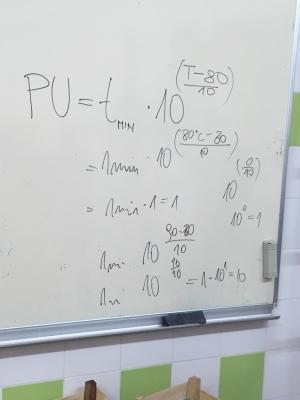 PU = t_MIN · 10^((T-80)/10)
= 1min · 10^((80°C-80)/10)
10^(0/10)
= 1min · 1 = 1
10^0 = 1
1mi 10^((90-80)/10)
1m 10^(10/10) = 1 · 10^1 = 10